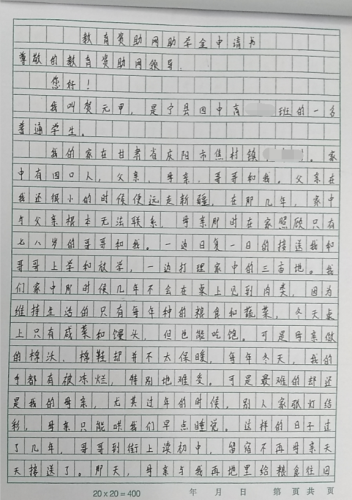 教育资助网助学金申请书
尊敬的教育资助网领导:
您好!
我叫贺元甲,是宁县四中高 班的一名
普通学生。
我的家在甘肃省庆阳市焦村镇, 。家
中有四口人,父亲、母亲、哥哥和我。父亲在
我还很小的时候便远走新疆,在那几年,家中
与父亲根本无法联系,母亲那时在家照顾只有
七八岁的哥哥和我。一边日复一日的接送我和
哥哥上学和放学,一边打理家中的三亩地。我
们家中那时候几年不会在桌上见到肉类,因为
维持生活的只有每年种的粮食和蔬菜,冬天桌
上只有咸菜和馒头,但也能吃饱。可是母亲做
的棉袄、棉鞋却并不太保暖,每年冬天,我的
手都有被冻烂,特别地难受。可是最难的却还
是我的母亲,尤其过年的时候,别人家张灯结
彩,母亲只能哄我们早点睡觉。这样的日子过
了几年,哥哥到街上读初中,留宿不再母亲天
天接送了。那天,母亲与我再地里给粮食拉回
20×20=400 年 月 日 第 页 共 页